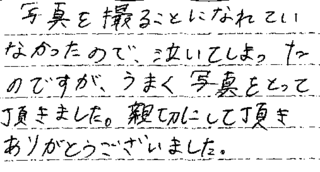 写真を撮ることになれてい
なかったので、泣いてしまった
のですが、うまく写真をとって
頂きました。親切にして頂き
ありがとうございました。